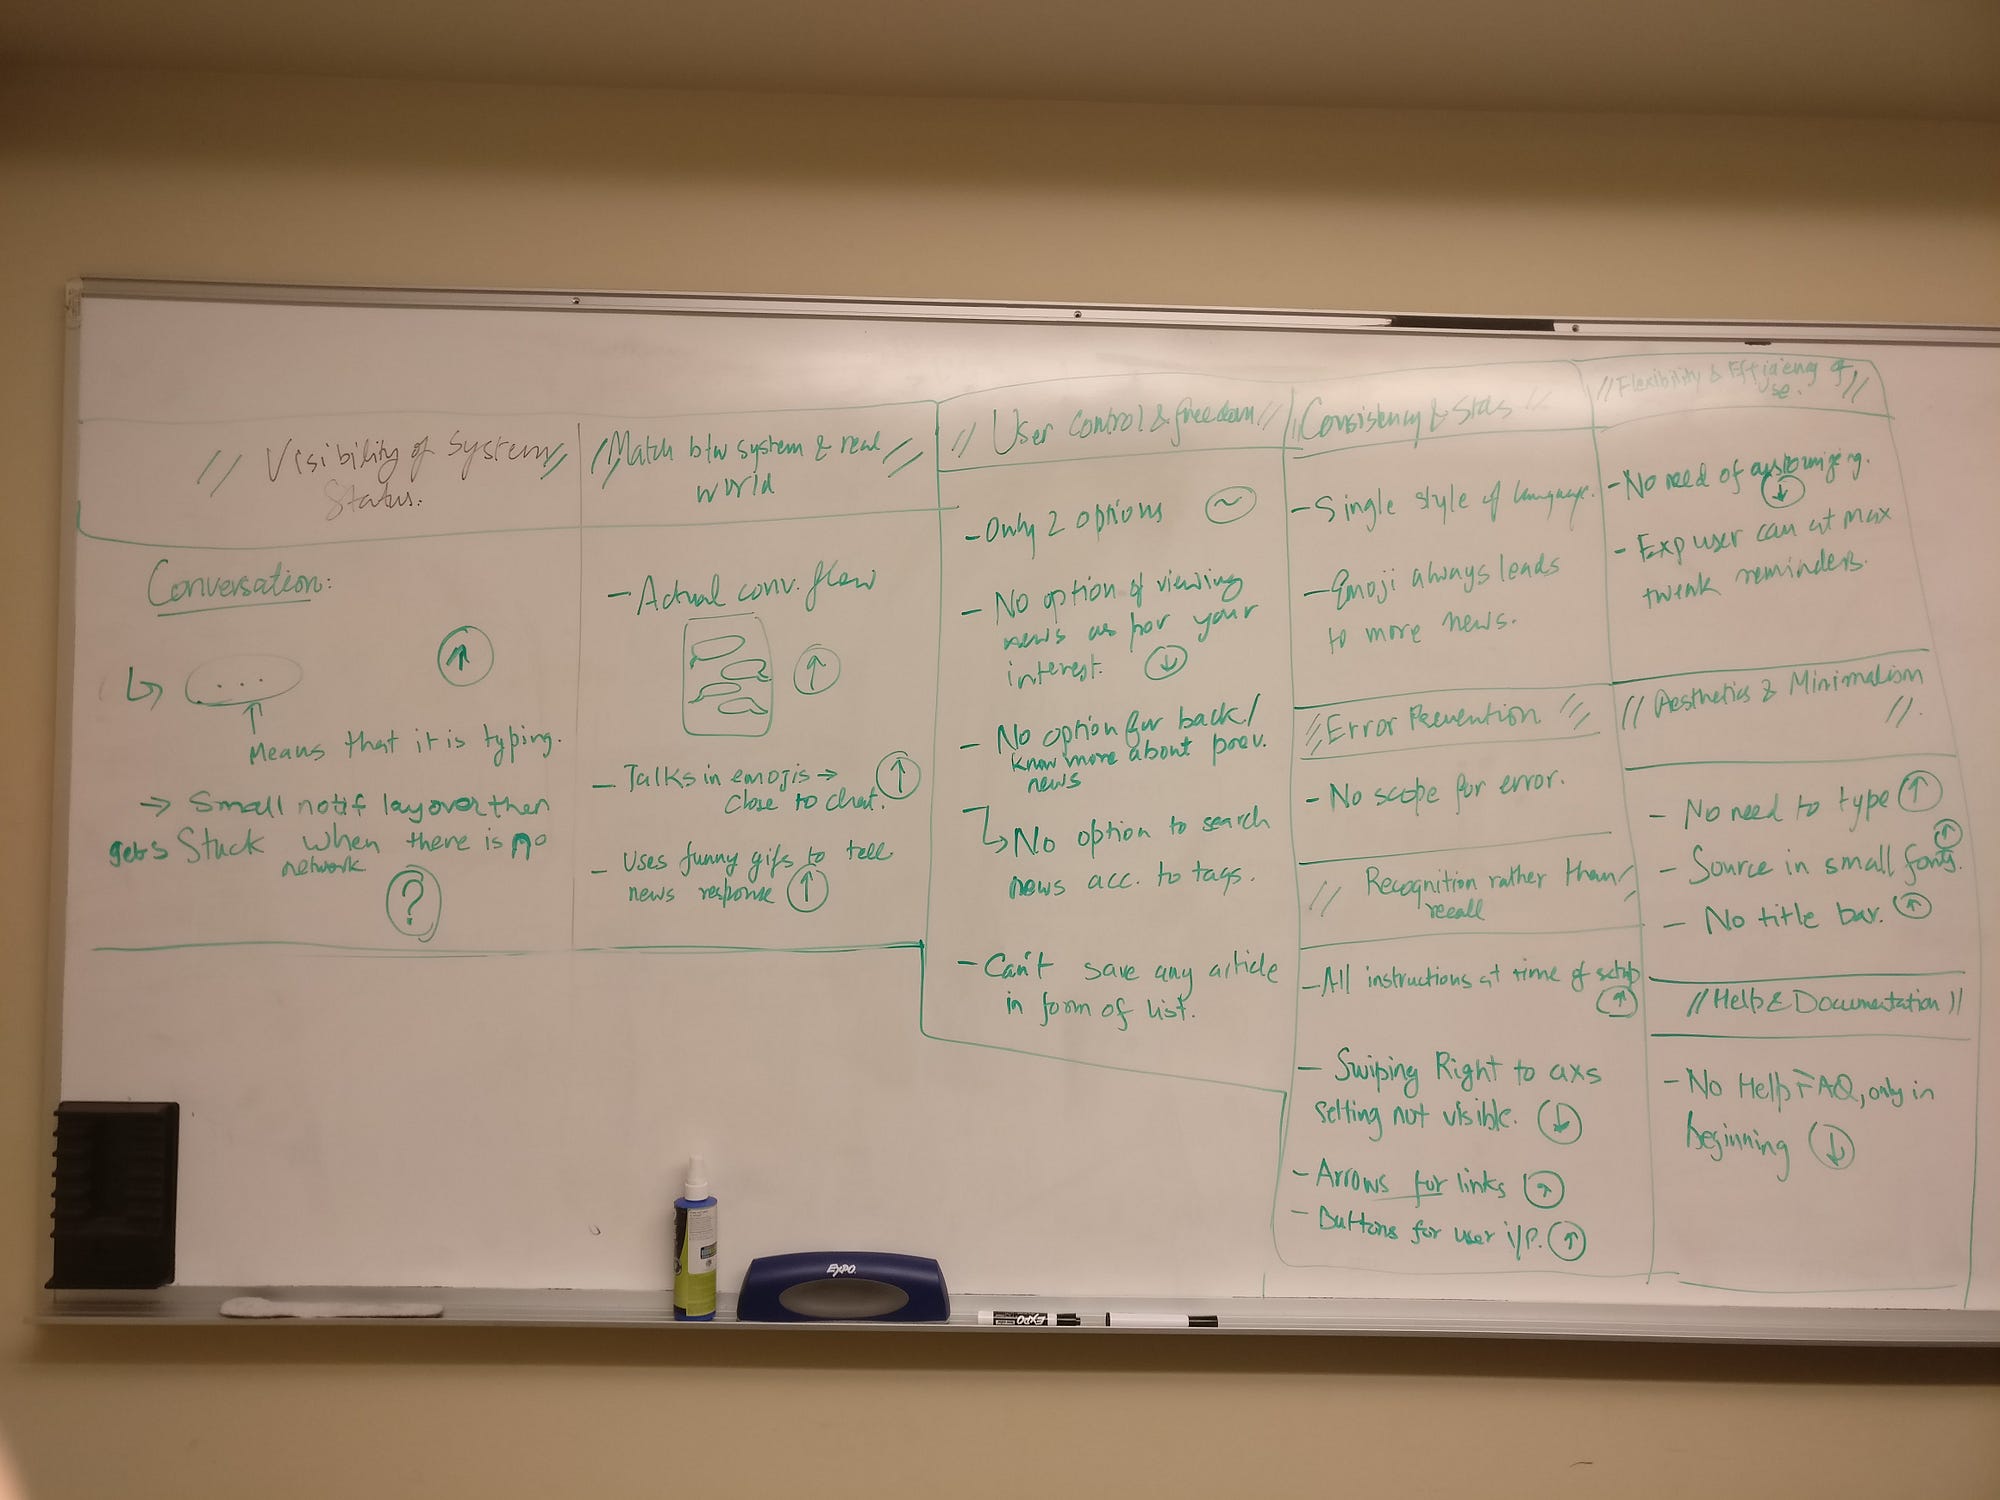 // Visibility of System //
Status.
Conversation:
...
Means that it is typing.
→ Small notif layover then
gets Stuck when there is no
network
?
// Match btw system & real //
world
- Actual conv. flow
- Talks in emojis →
close to chat.
- Uses funny gifs to tell
news response
// User Control & freedom //
- Only 2 options ~
- No option of viewing
news as per your
interest.
- No option for back/
know more about prev.
news
↳ No option to search
news acc. to tags.
- Can't save any article
in form of list.
// Consistency & Stds //
- Single style of language.
- Emoji always leads
to more news.
// Error Prevention //
- No scope for error.
// Recognition rather than //
recall
- All instructions at time of setup
- Swiping Right to axs
setting not visible.
- Arrows for links
- Buttons for user i/p.
// Flexibility & Efficiency of //
Use.
- No need of customizing.
- Exp user can at max
tweak reminders.
// Aesthetics & Minimalism
//.
- No need to type
- Source in small fonts.
- No title bar.
// Help & Documentation //
- No Help FAQ, only in
beginning
EXPO
EXPO